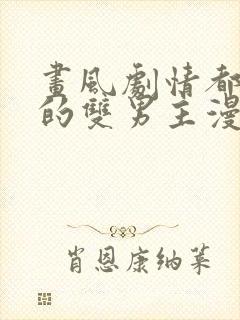 畫風劇情都
的雙男主漫
肖恩康納萊